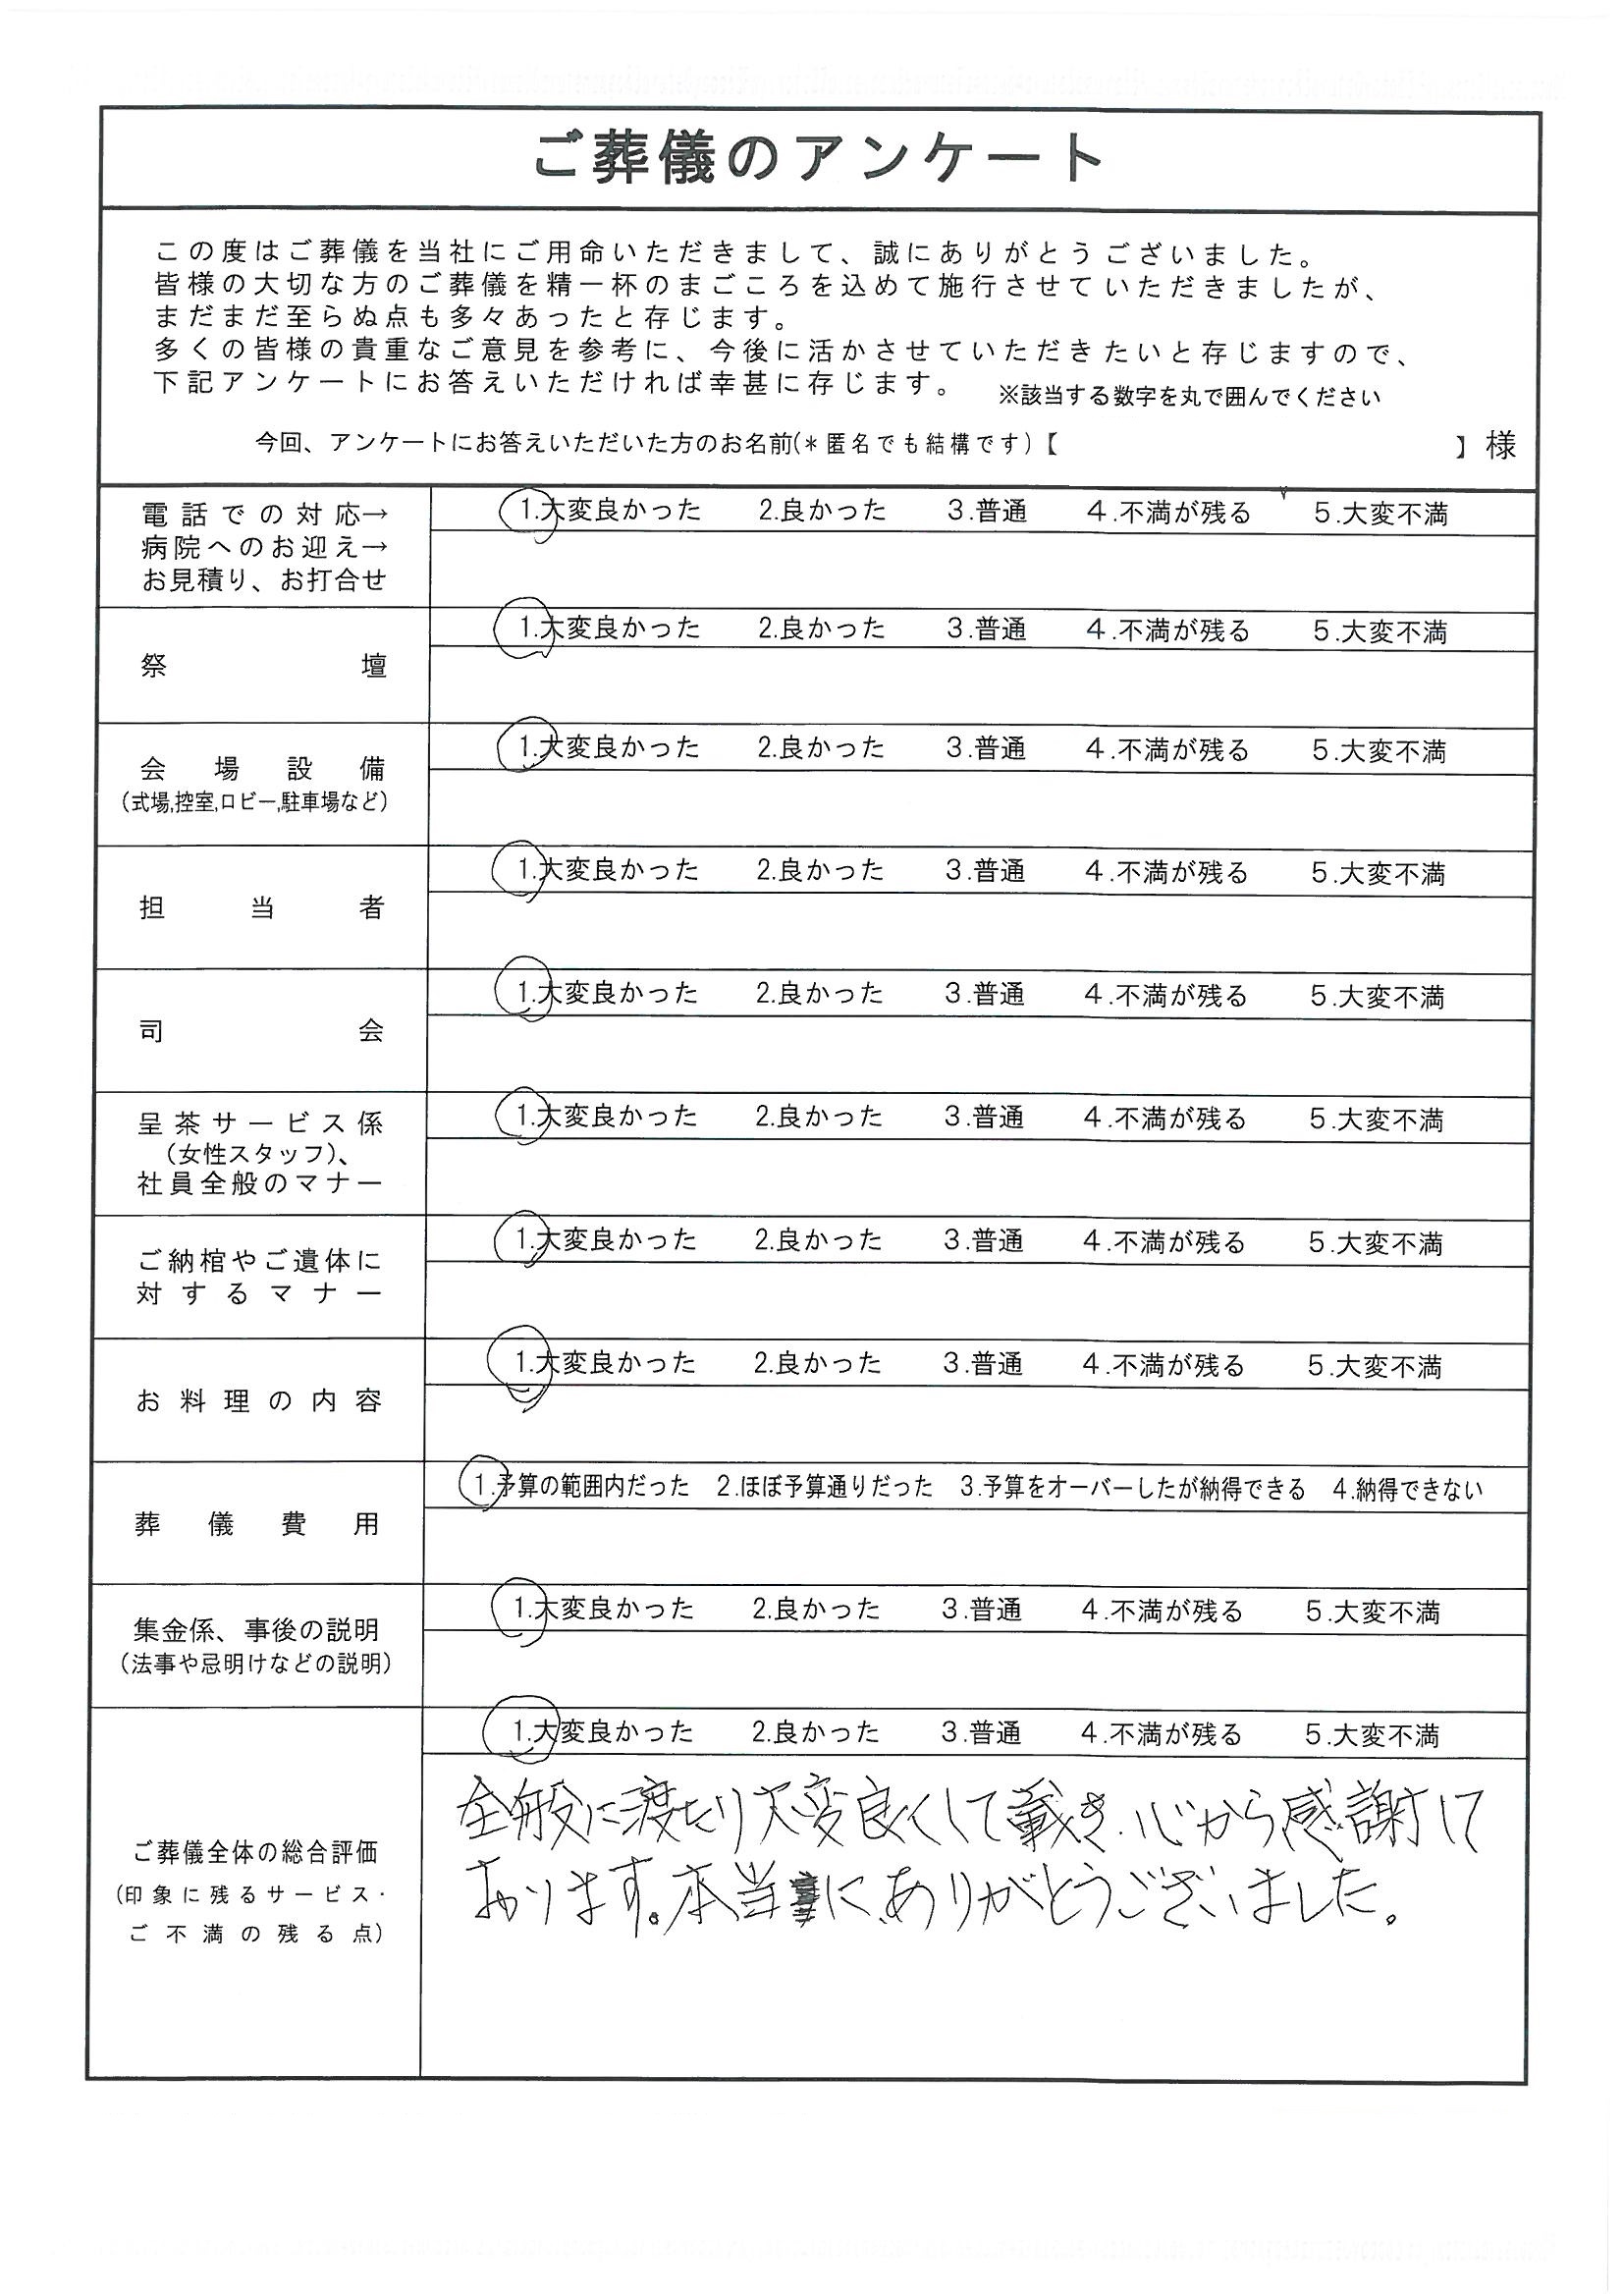 ご葬儀のアンケート
この度はご葬儀を当社にご用命いただきまして、誠にありがとうございました。
皆様の大切な方のご葬儀を精一杯のまごころを込めて施行させていただきましたが、
まだまだ至らぬ点も多々あったと存じます。
多くの皆様の貴重なご意見を参考に、今後に活かさせていただきたいと存じますので、
下記アンケートにお答えいただければ幸甚に存じます。 ※該当する数字を丸で囲んでください
今回、アンケートにお答えいただいた方のお名前(＊匿名でも結構です)【 】様
電話での対応→
病院へのお迎え→
お見積り、お打合せ
1.大変良かった 2.良かった 3.普通 4.不満が残る 5.大変不満
祭壇
1.大変良かった 2.良かった 3.普通 4.不満が残る 5.大変不満
会場設備
(式場,控室,ロビー,駐車場など)
1.大変良かった 2.良かった 3.普通 4.不満が残る 5.大変不満
担当者
1.大変良かった 2.良かった 3.普通 4.不満が残る 5.大変不満
司会
1.大変良かった 2.良かった 3.普通 4.不満が残る 5.大変不満
呈茶サービス係
(女性スタッフ)、
社員全般のマナー
1.大変良かった 2.良かった 3.普通 4.不満が残る 5.大変不満
ご納棺やご遺体に
対するマナー
1.大変良かった 2.良かった 3.普通 4.不満が残る 5.大変不満
お料理の内容
1.大変良かった 2.良かった 3.普通 4.不満が残る 5.大変不満
葬儀費用
1.予算の範囲内だった 2.ほぼ予算通りだった 3.予算をオーバーしたが納得できる 4.納得できない
集金係、事後の説明
(法事や忌明けなどの説明)
1.大変良かった 2.良かった 3.普通 4.不満が残る 5.大変不満
ご葬儀全体の総合評価
(印象に残るサービス・
ご不満の残る点)
1.大変良かった 2.良かった 3.普通 4.不満が残る 5.大変不満
全般に渡たり大変良くして戴き、心から感謝して
おります。本当に、ありがとうございました。